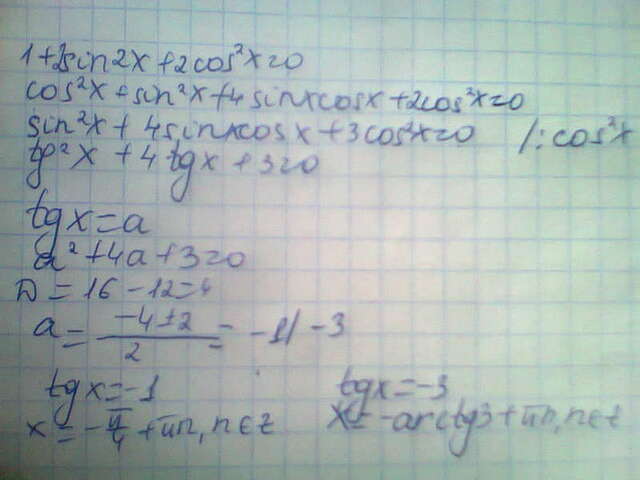 1+2sin2x+2cos²x=0
cos²x+sin²x+4sinxcosx+2cos²x=0
sin²x+4sinxcosx+3cos²x=0 /:cos²x
tg²x+4tgx+3=0
tgx=a
a²+4a+3=0
D=16-12=4
a=(-4±2)/2=-1/-3
tgx=-1 tgx=-3
x=-π/4+πn,n∈z x=-arctg3+πn,n∈z